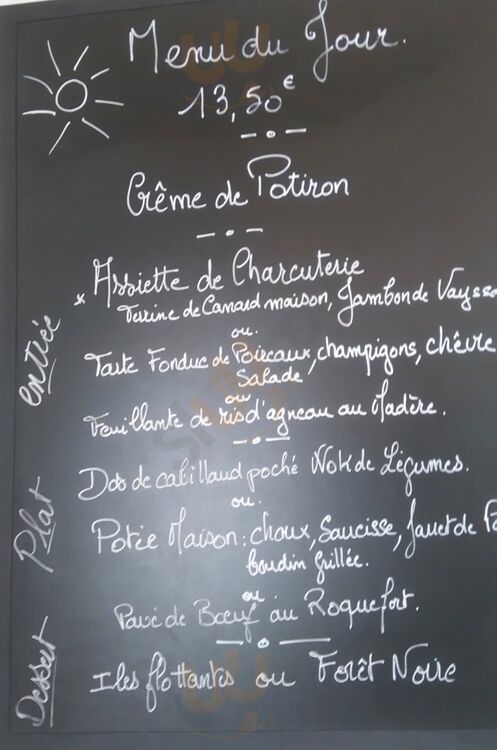 Menu du Jour.
13,50€
Crême de Potiron
* Assiette de Charcuterie
Terrine de Canard maison, Jambon de Vayssa
ou.
entrée
Tarte Fondue de Poireaux, champigons, chêvre
Salade
ou
Feuillante de ris d'agneau au Madère.
Plat
Dos de cabillaud poché Wok de Légumes.
ou.
Potée Maison: choux, Saucisse, Jaret de Po
boudin Grillée.
ou
Pavé de Bœuf au Roquefort.
Dessert
Iles flottantes ou Forêt Noire